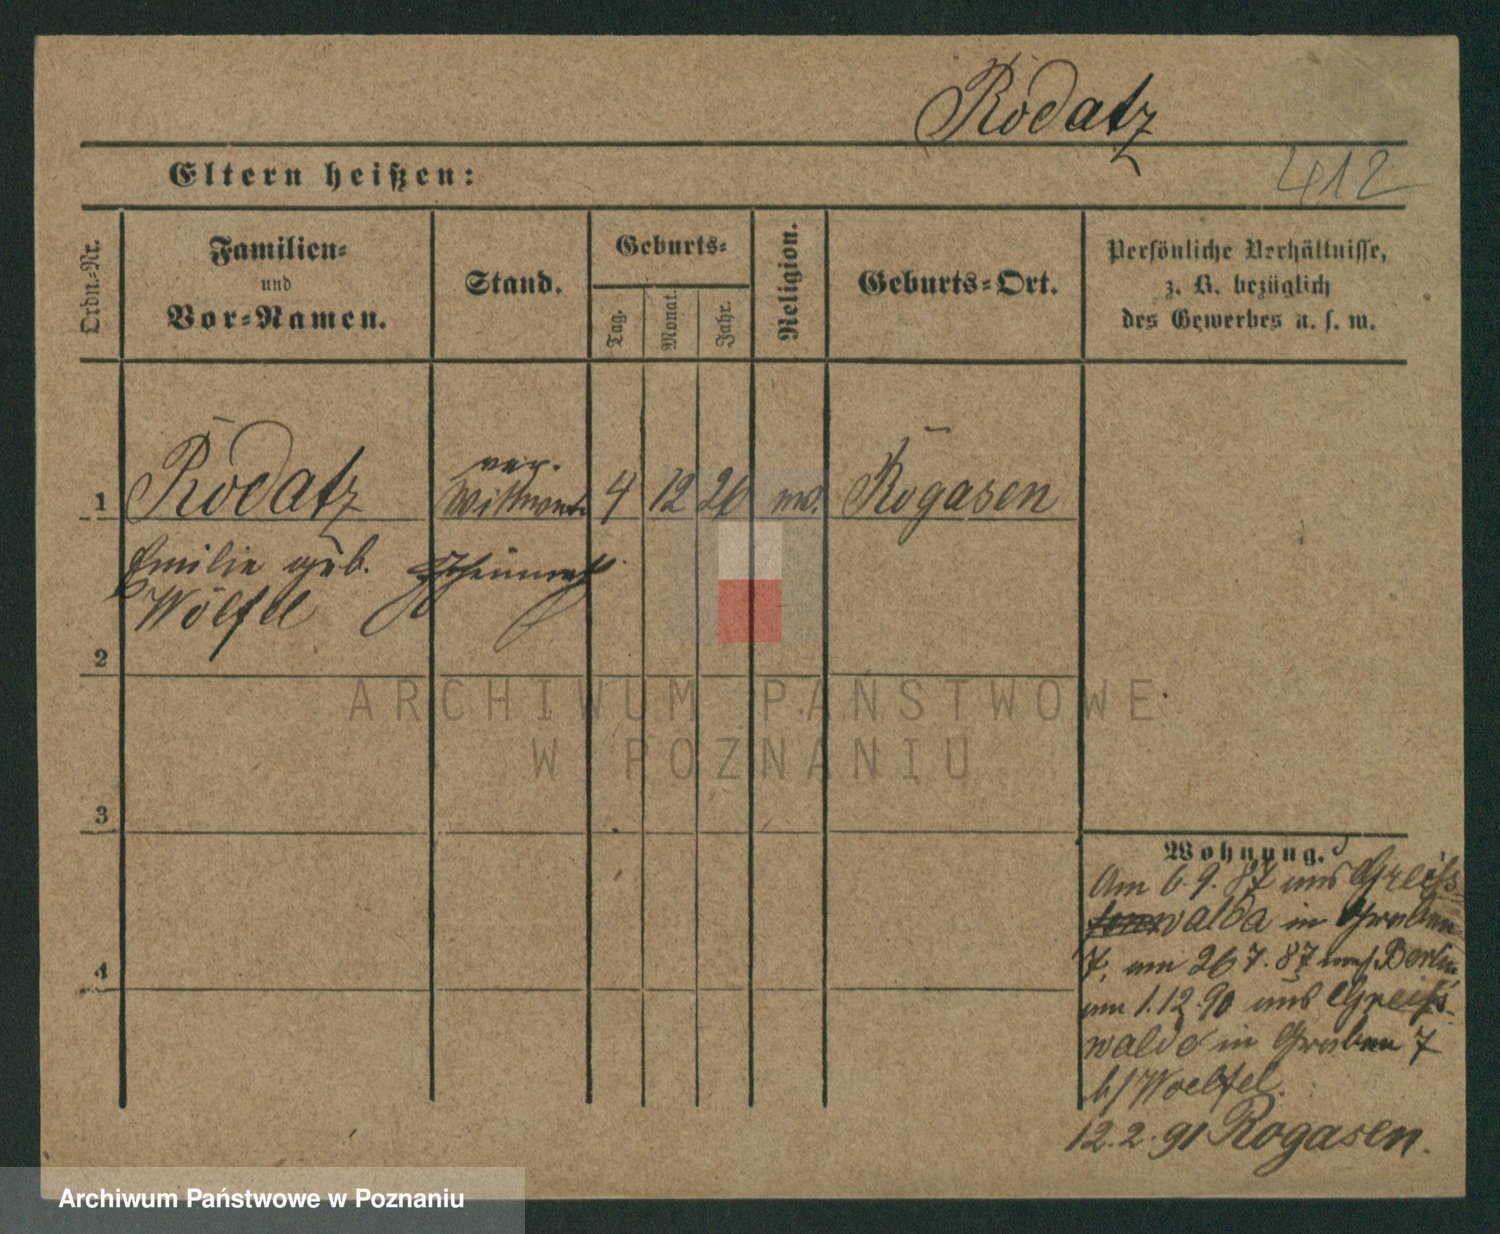 Rodatz
412
Eltern heißen:
Ordn.-Nr.
Familien-
und
Vor-Namen.
Stand.
Geburts-
Tag.
Monat.
Jahr.
Religion.
Geburts-Ort.
Persönliche Verhältnisse,
z. B. bezüglich
des Gewerbes u. s. w.
1 Rodatz 4 12 Rogasen
Emilie geb.
Wölfel
2
3
4
Wohnung.
Am 6.9.87 aus Greifs
walda in Graben
7, am 26 7. 87 nach Berlin
am 1.12.90 aus Greifs-
walde in Graben 7
b/ Woelfel.
12.2.91 Rogasen.
ARCHIWUM PAŃSTWOWE
W POZNANIU
Archiwum Państwowe w Poznaniu